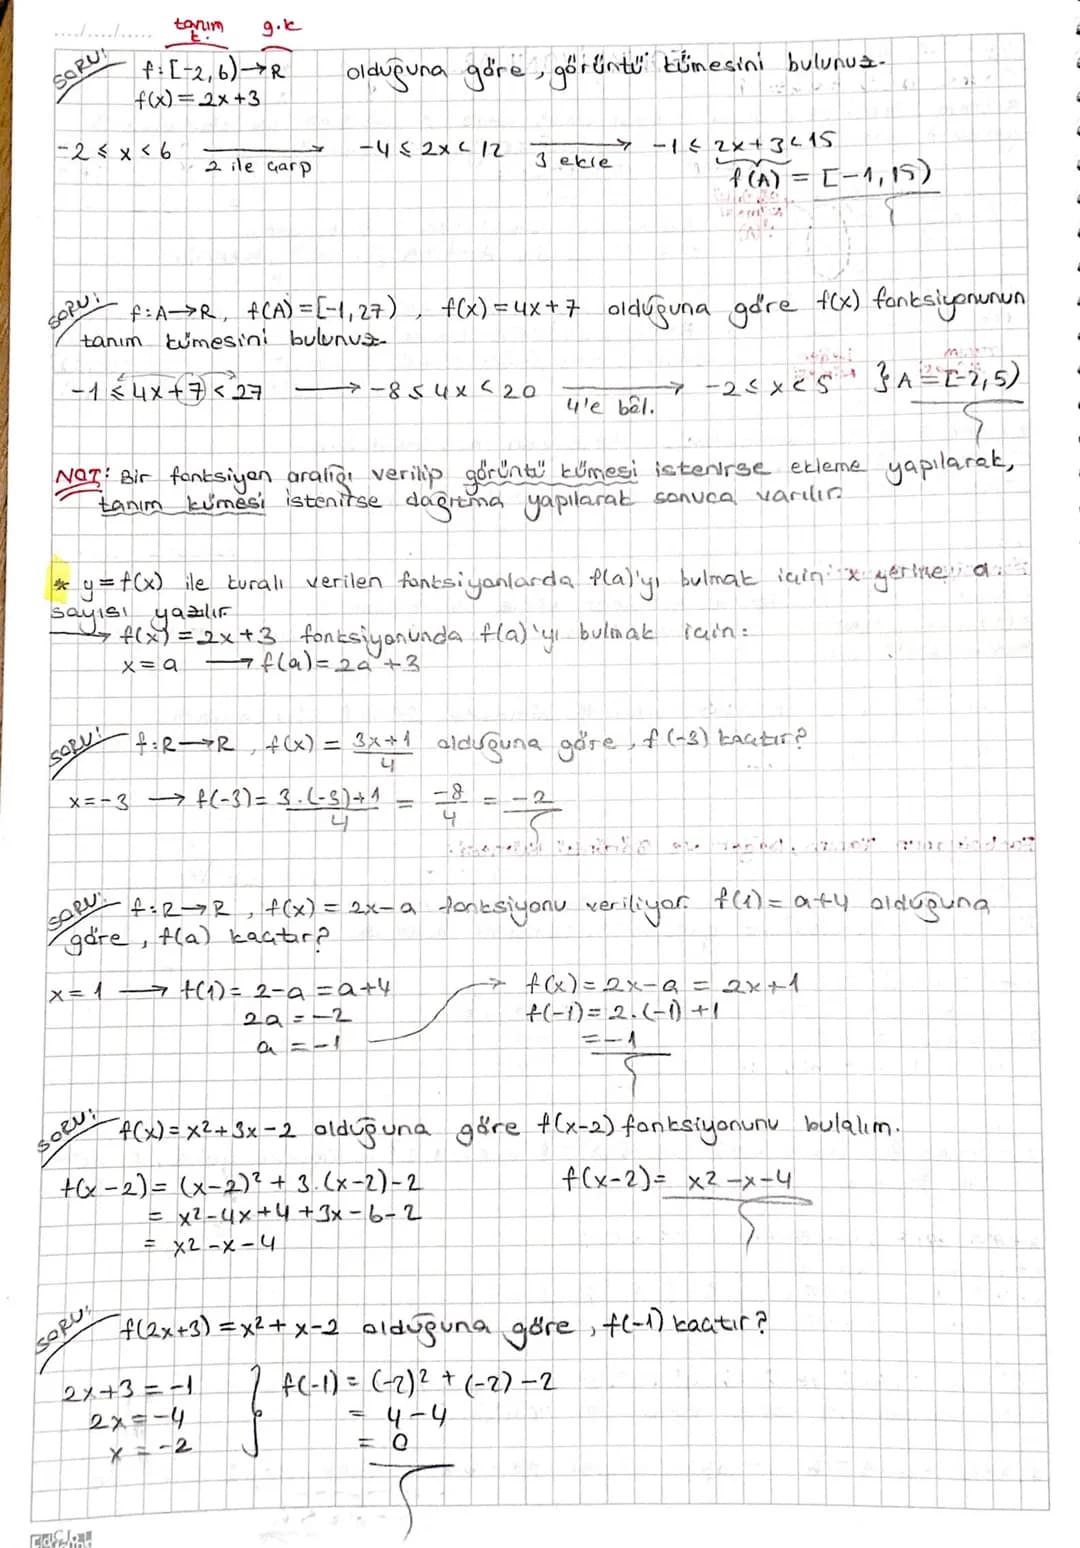 tanım g.k
t.
SORU: f:[-2,6)→R olduğuna göre, görüntü kümesini bulunuz.
f(x)=2x+3
-2≤x<6 → 2 ile çarp -4≤2x<12 → 3 ekle -1≤2x+3<15
f(A) = [-1,15)
SORU: f:A→R, f(A)=[-1,27), f(x)=4x+7 olduğuna göre f(x) fonksiyonunun
tanım kümesini bulunuz.
-1≤4x+7<27 → -8≤4x<20 → 4'e böl. -2≤x<5 } A=[-2,5)
NOT: Bir fonksiyon aralığı verilip görüntü kümesi istenirse ekleme yapılarak,
tanım kümesi istenirse dağıtma yapılarak sonuca varılır.
* y=f(x) ile kuralı verilen fonksiyonlarda f(a)'yı bulmak için x yerine a
sayısı yazılır
→ f(x)=2x+3 fonksiyonunda f(a)'yı bulmak için:
x=a → f(a)=2a+3
SORU: f:R→R, f(x) = 3x+1/4 olduğuna göre, f(-3) kaçtır?
x=-3 → f(-3)= 3.(-3)+1/4 = -8/4 = -2
SORU: f:R→R, f(x) = 2x-a fonksiyonu veriliyor. f(1)=a+4 olduğuna
göre, f(a) kaçtır?
x=1 → f(1)= 2-a=a+4 → f(x)=2x-a = 2x+1
2a=-2 f(-1)=2.(-1)+1
a=-1 =-1
SORU: f(x)=x²+3x-2 olduğuna göre f(x-2) fonksiyonunu bulalım.
f(x-2)= (x-2)²+3.(x-2)-2 f(x-2)= x²-x-4
= x²-4x+4+3x-6-2
= x²-x-4
SORU: f(2x+3)=x²+x-2 olduğuna göre, f(-1) kaçtır?
2x+3=-1 } f(-1)= (-2)²+(-2)-2
2x=-4 = 4-4
x=-2 = 0